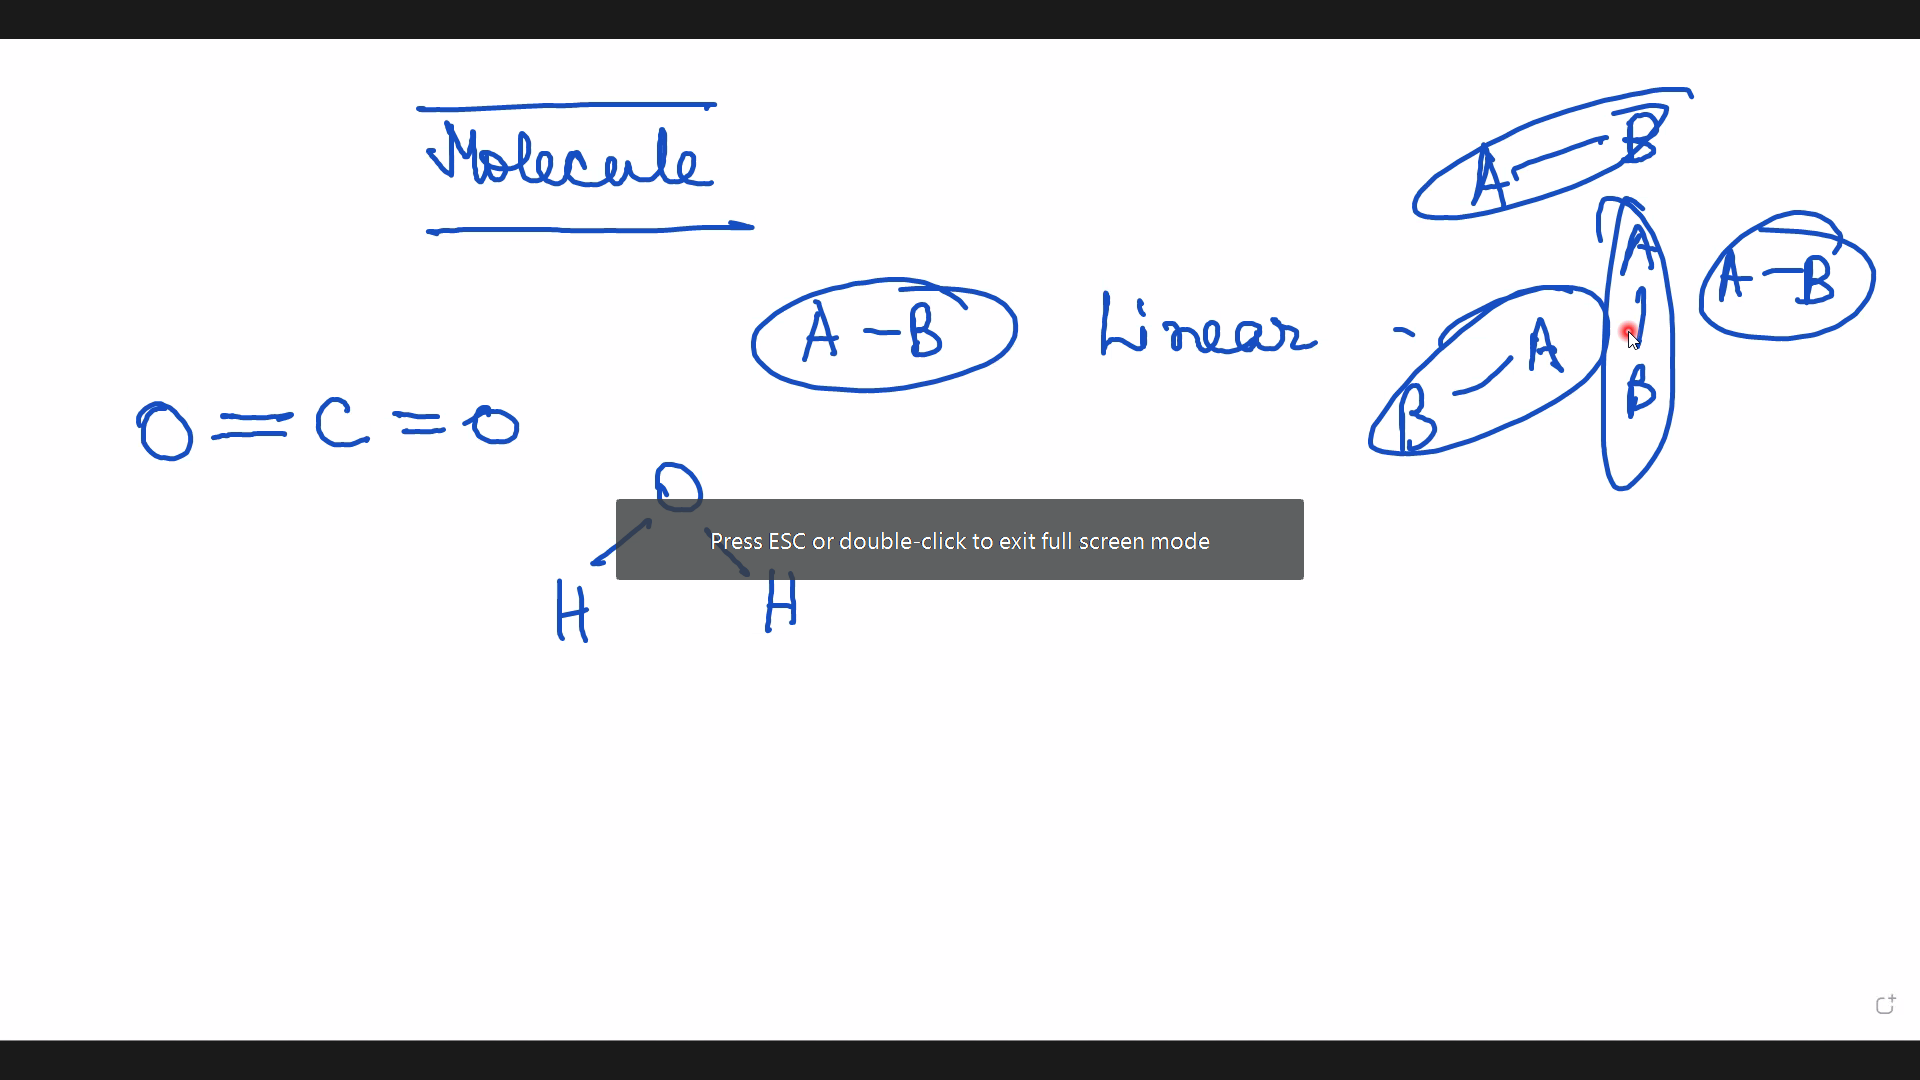 Molecule
A - B
A - B Linear -
A - B
B - A
A
|
B
O = C = O
O
H H
Press ESC or double-click to exit full screen mode